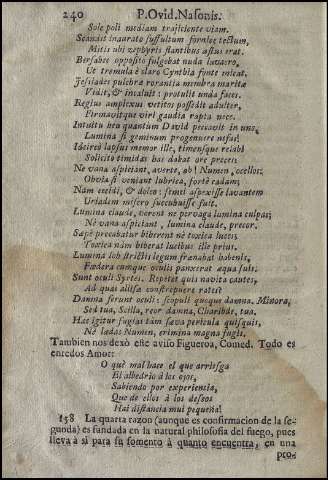 240 P. Ovid. Nasonis.
Sole poli mediam trajiciente viam.
Scandit inaurato fussultum fornice tectum,
Mitis ubi zephyris flantibus æstus erat.
Bersabee opposito fulgebat nuda lavacro,
Ut tremula è claro Cynthia fonte micat.
Jessiades pulchra rorantia membra marita
Vidit, & invaluit: protulit unda faces.
Regius amplexus vetitos possedit adulter,
Firmavitque viri gaudia rapta nece.
Intuitu heu quantum David peccavit in uno,
Lumina si geminum progenuere nefas!
Idcircò lapsus memor ille, timensque relabi
Sollicitò timidas has dabat ore preces:
Ne vana aspiciant, averte, ah! Numen, ocellos;
Obvia si veniant lubrica, fortè cadam;
Nam cecidi, & doleo: semel aspexisse lavantem
Uriadem misero succubuisse fuit.
Lumina claude, verent ne pervaga lumina culpas;
Nè vana aspiciant, lumina claude, precor.
Sæpè precabatur biberent nè toxica luces
Toxica nam biberat luctibus ille prius.
Lumina sob strictis legum frænabat habenis,
Fœdera cumque oculi panxerat æqua suis.
Sunt oculi Syrtes. Repetat quis navita cautes,
Ad quas alisa constrepuere rates?
Damna ferunt oculi: scopuli quoque damna. Minora,
Sed tua, Scilla, reor damna, Charibdis, tua.
Hac igitur fugias tam sæva pericula quisquis,
Nè lædas Numen, crimina magna fuge.
Tambien nos dexò este aviso Figueroa, Comed. Todo es
enredos Amor:
O què mal hace el que arriesga
El albedrio à los ojos,
Sabiendo por experiencia,
Que de ellos à los deseos
Hai distancia mui pequeña!
158 La quarta razon (aunque es confirmacion de la se-
gunda) es fundada en la natural philosofia del fuego, pues
lleva à sì para su fomento à quanto encuentra, en una
pro-